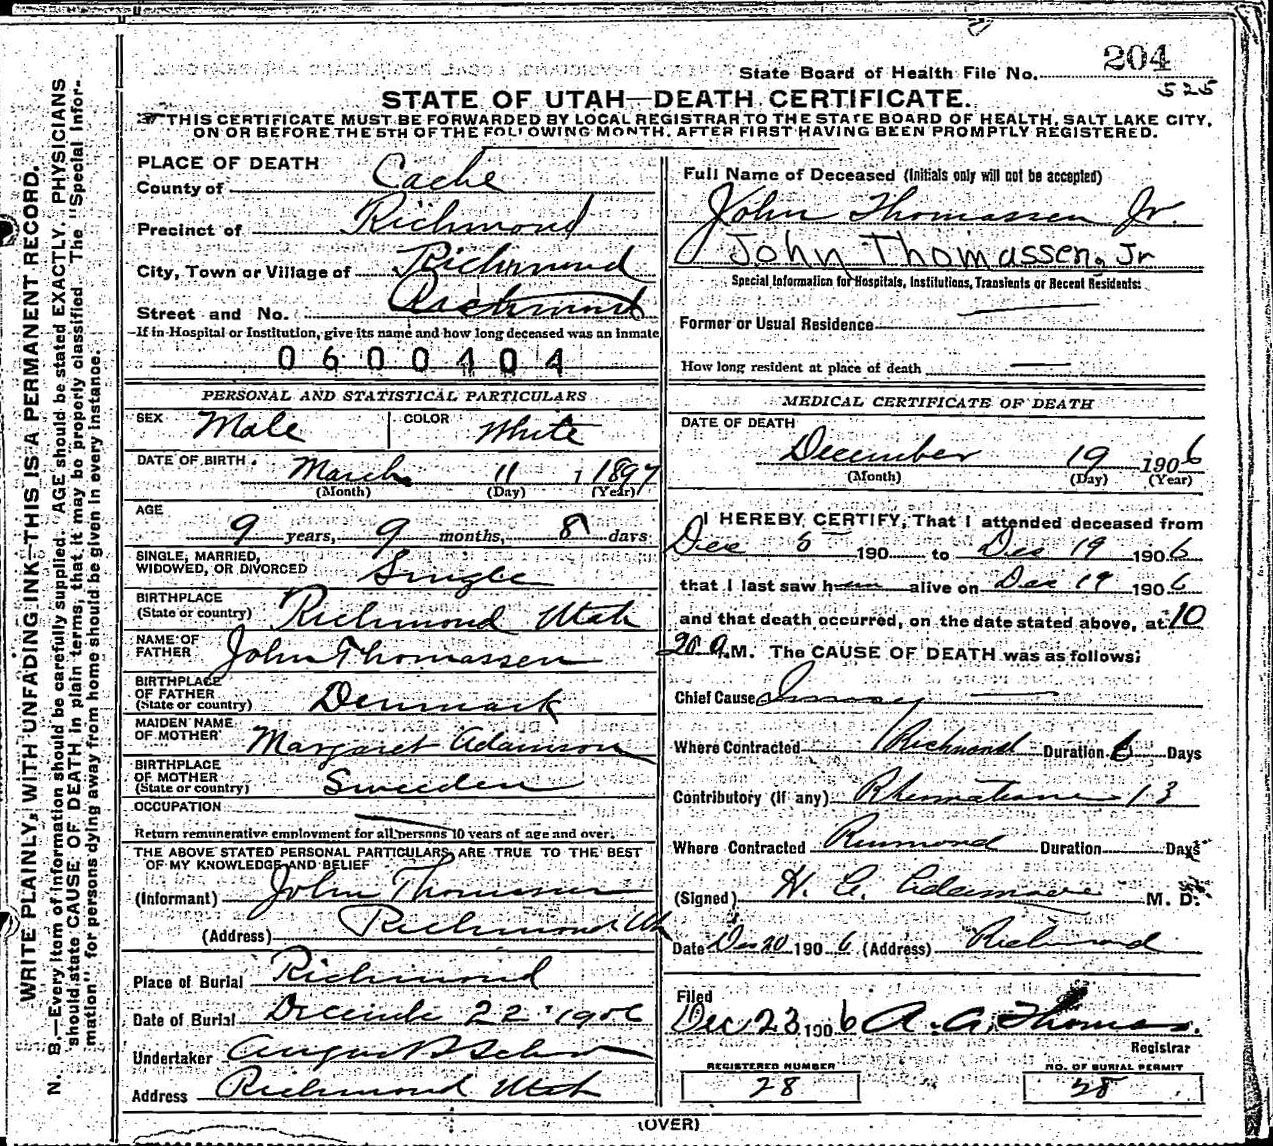 204
State Board of Health File No.
525
STATE OF UTAH—DEATH CERTIFICATE.
THIS CERTIFICATE MUST BE FORWARDED BY LOCAL REGISTRAR TO THE STATE BOARD OF HEALTH, SALT LAKE CITY,
ON OR BEFORE THE 5TH OF THE FOLLOWING MONTH, AFTER FIRST HAVING BEEN PROMPTLY REGISTERED.
WRITE PLAINLY, WITH UNFADING INK—THIS IS A PERMANENT RECORD.
N. B.—Every item of information should be carefully supplied. AGE should be stated EXACTLY. PHYSICIANS
should state CAUSE OF DEATH in plain terms, that it may be properly classified. The "Special Infor-
mation" for persons dying away from home should be given in every instance.
PLACE OF DEATH
County of Cache
Precinct of Richmond
City, Town or Village of Richmond
Street and No. Richmond
If in Hospital or Institution, give its name and how long deceased was an inmate
0600404
PERSONAL AND STATISTICAL PARTICULARS
SEX Male COLOR White
DATE OF BIRTH. March 11 1 1897
(Month) (Day) (Year)
AGE
9 years, 9 months, 8 days
SINGLE, MARRIED,
WIDOWED, OR DIVORCED Single
BIRTHPLACE
(State or country) Richmond Utah
NAME OF
FATHER John Thomassen
BIRTHPLACE
OF FATHER
(State or country) Denmark
MAIDEN NAME
OF MOTHER Margaret Adamson
BIRTHPLACE
OF MOTHER
(State or country) Sweeden
OCCUPATION
Return remunerative employment for all persons 10 years of age and over.
THE ABOVE STATED PERSONAL PARTICULARS ARE TRUE TO THE BEST
OF MY KNOWLEDGE AND BELIEF
(Informant) John Thomassen
(Address) Richmond Ut
Place of Burial Richmond
Date of Burial December 22 1906
Undertaker August
Address Richmond Utah
Full Name of Deceased (Initials only will not be accepted)
John Thomassen Jr.
John Thomassen, Jr
Special Information for Hospitals, Institutions, Transients or Recent Residents:
Former or Usual Residence
How long resident at place of death
MEDICAL CERTIFICATE OF DEATH
DATE OF DEATH
December 19 1906
(Month) (Day) (Year)
I HEREBY CERTIFY, That I attended deceased from
Dec 5 190 to Dec 19 1906
that I last saw h alive on Dec 19 1906
and that death occurred, on the date stated above, at 10
20 a.M. The CAUSE OF DEATH was as follows:
Chief Cause
Where Contracted Richmond Duration 6 Days
Contributory (if any) Rheumatism 13
Where Contracted Richmond Duration Days
(Signed) H. G. Adamson M. D.
Date Dec 20 1906 (Address) Richmond
Filed
Dec 23, 1906 A. A. Thomas.
Registrar
REGISTERED NUMBER
28
NO. OF BURIAL PERMIT
28
(OVER)